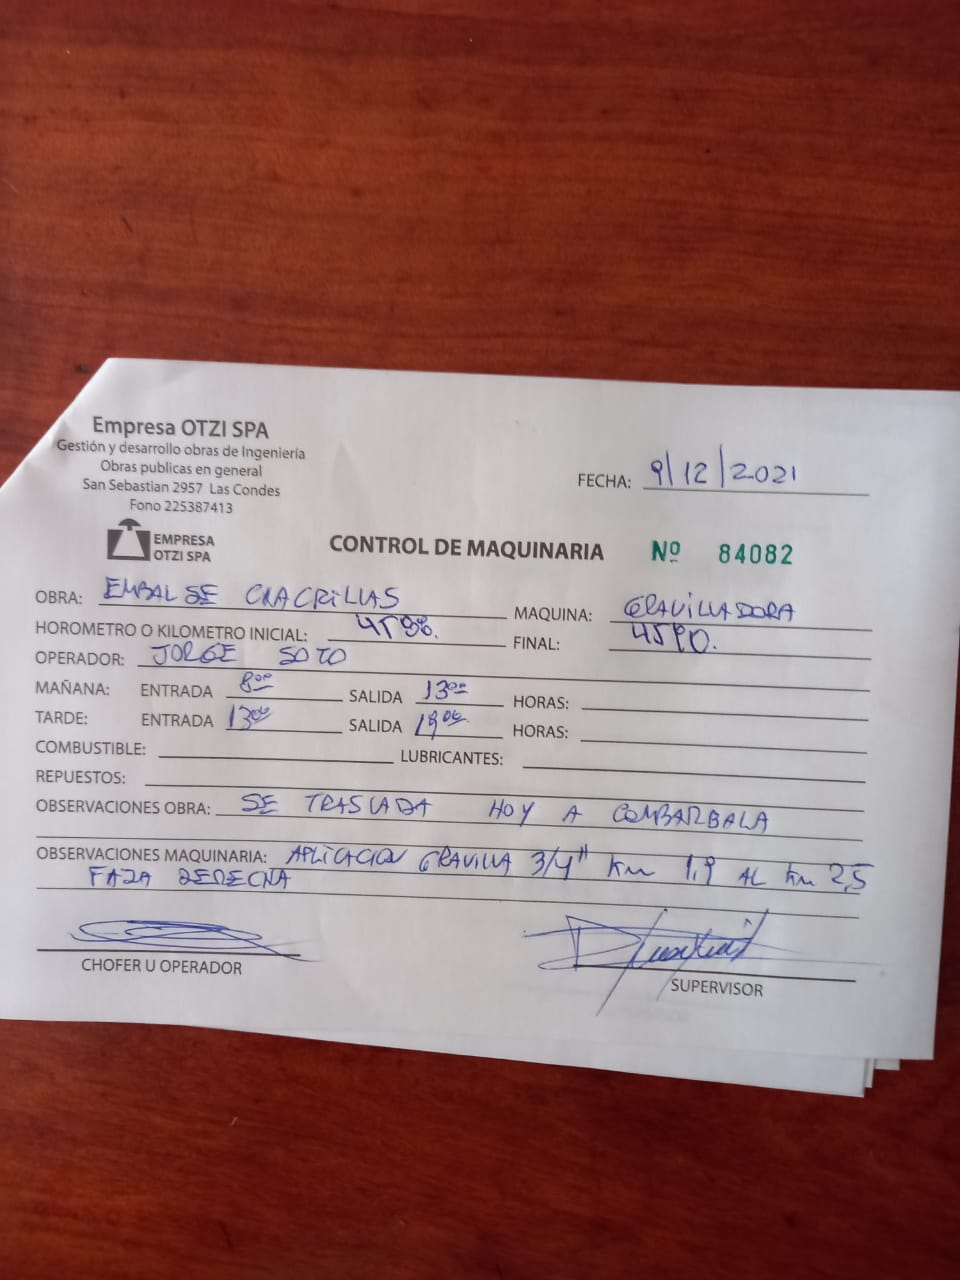 Empresa OTZI SPA
Gestión y desarrollo obras de Ingeniería
Obras publicas en general
San Sebastian 2957 Las Condes
Fono 225387413
FECHA: 9/12/2021
EMPRESA
OTZI SPA
CONTROL DE MAQUINARIA Nº 84082
OBRA: EMBALSE CHACRILLAS MAQUINA: GRAVILLADORA
HOROMETRO O KILOMETRO INICIAL: FINAL: 4590.
OPERADOR: JORGE SOTO
MAÑANA: ENTRADA 8:00 SALIDA 13:00 HORAS:
TARDE: ENTRADA 13:00 SALIDA HORAS:
COMBUSTIBLE: LUBRICANTES:
REPUESTOS:
OBSERVACIONES OBRA: SE TRASLADA HOY A COMBARBALA
OBSERVACIONES MAQUINARIA: APLICACION GRAVILLA 3/4" Km 1,9 AL Km 2,5
FAJA DERECHA
CHOFER U OPERADOR
SUPERVISOR